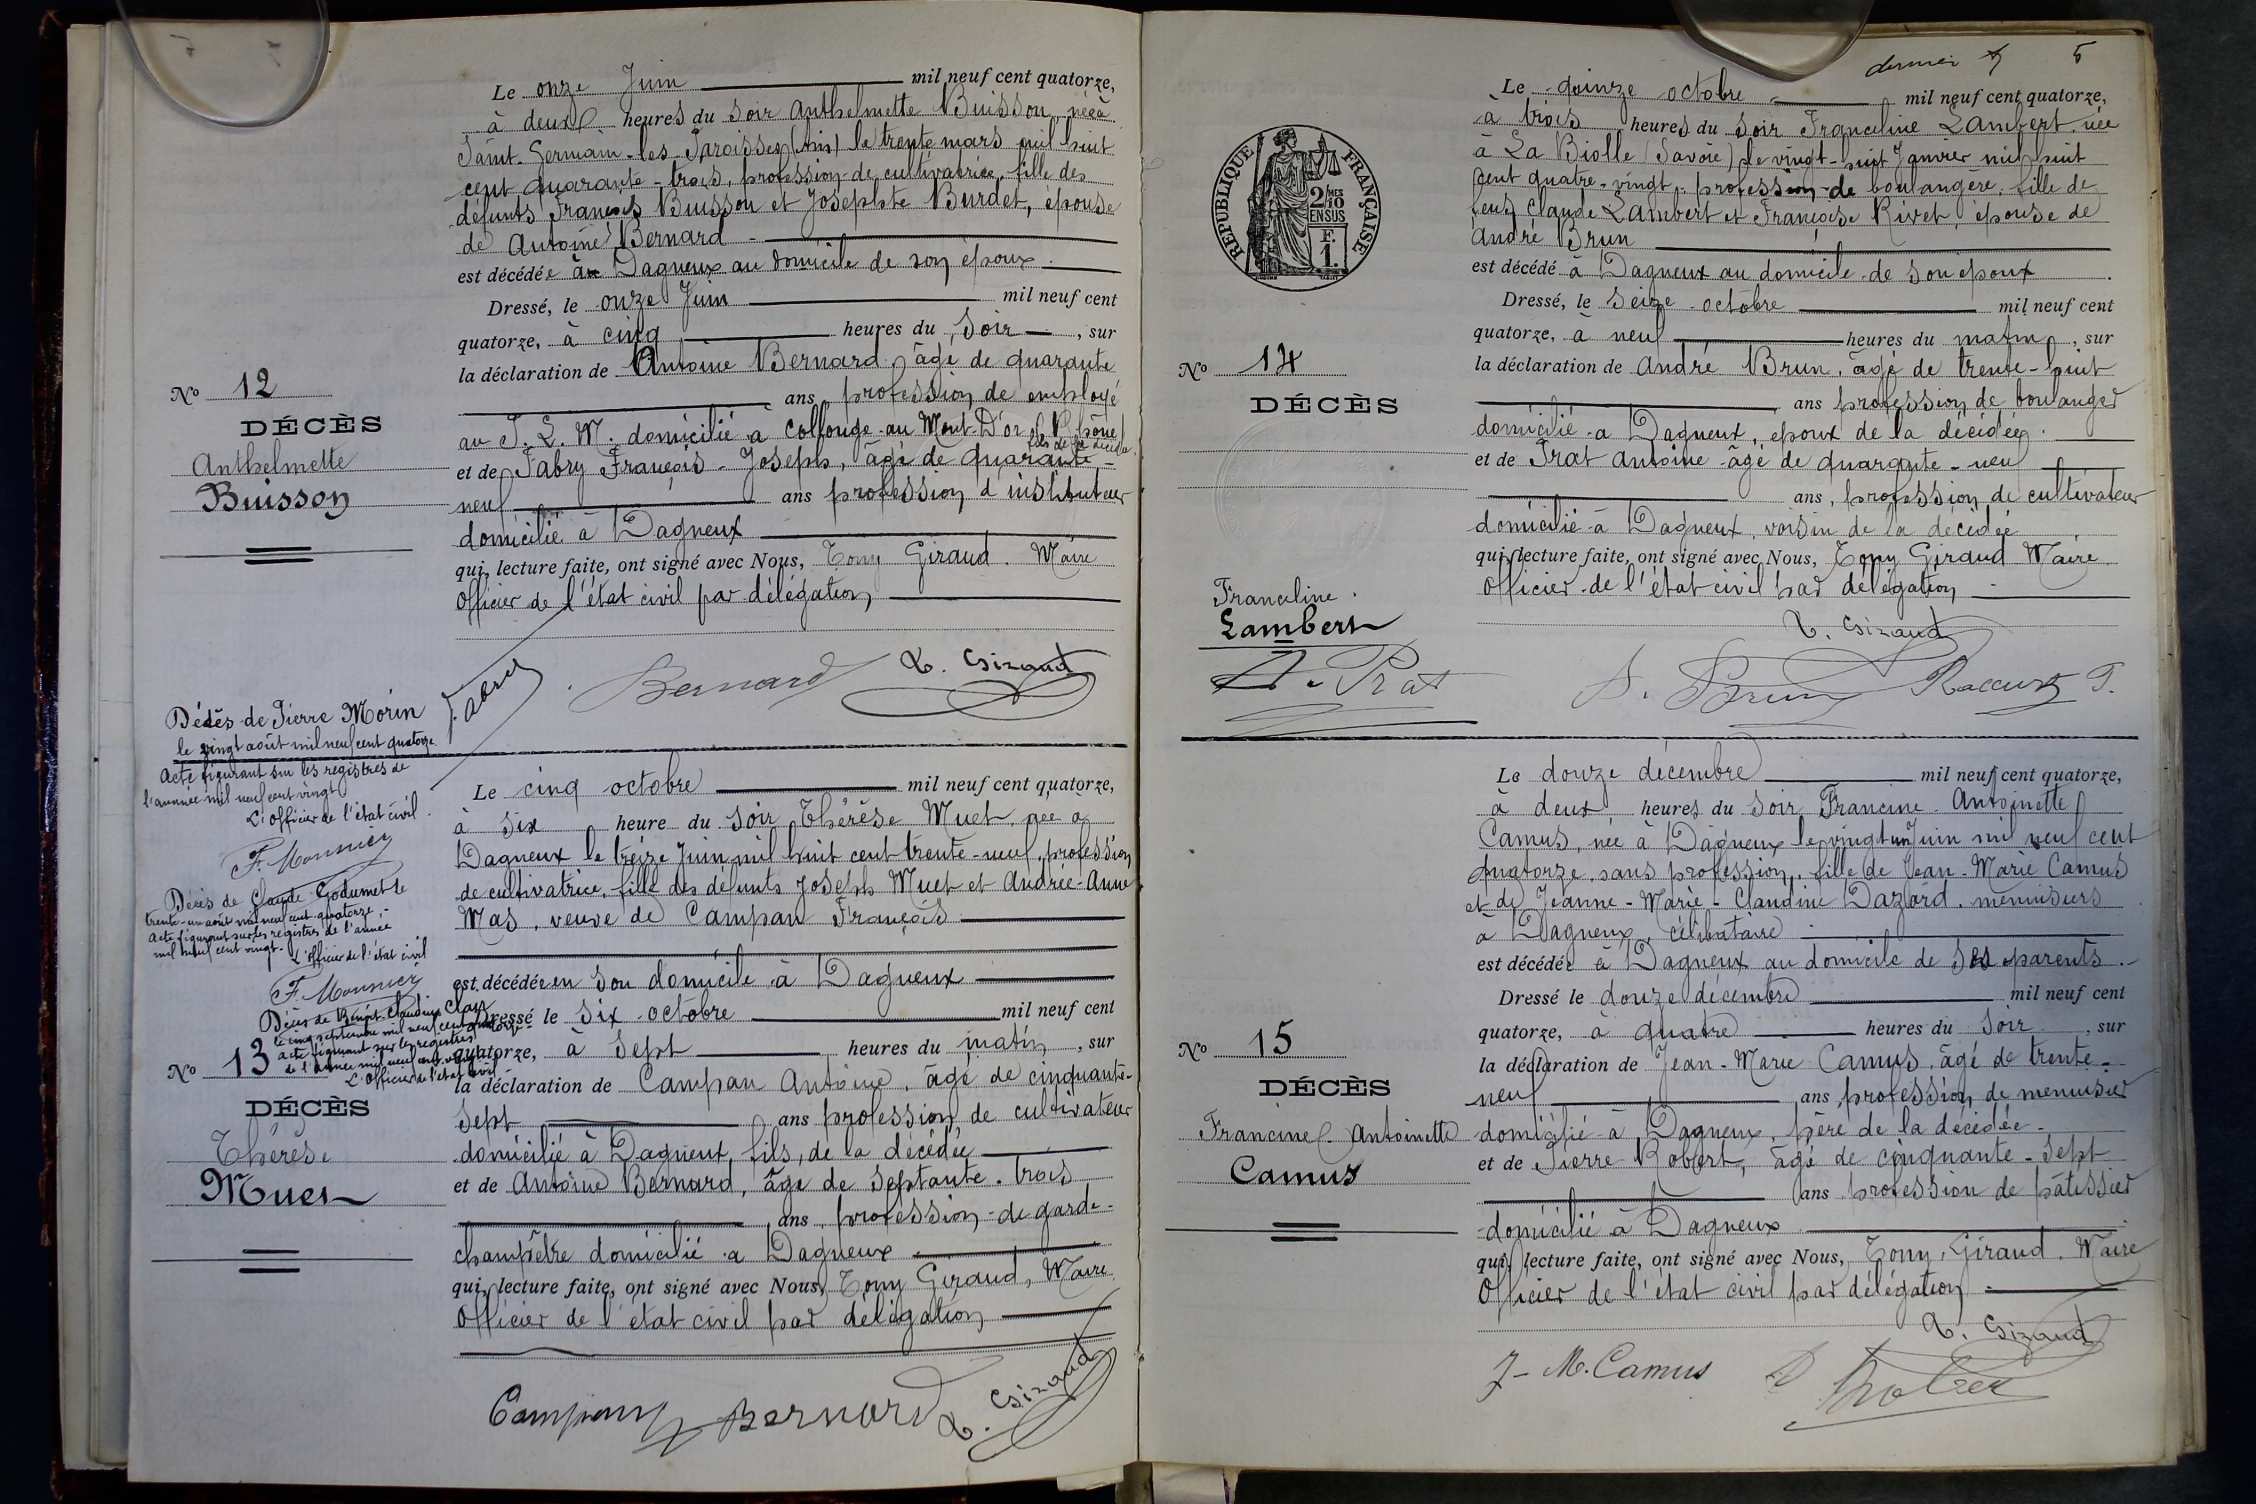 Le onze Juin mil neuf cent quatorze,
à deux heures du soir Anthelmette Buisson, née à
Saint-Germain-les-Paroisses (Ain) le trente mars mil huit
cent quarante-trois, profession de cultivatrice, fille des
défunts François Buisson et Josephte Burdet, épouse
de Antoine Bernard
est décédée à Dagneux au domicile de son époux.
Dressé, le onze Juin mil neuf cent
quatorze, à cinq heures du soir, sur
la déclaration de Antoine Bernard âgé de quarante
ans profession de employé
au P. L. M. domicilié à Collonge-au-Mont-D'or
fils de la décédée
et de Fabry François-Joseph, âgé de quarante-
neuf ans profession d'instituteur
domicilié à Dagneux
qui, lecture faite, ont signé avec Nous, Tony Giraud. Maire
Officier de l'état civil par délégation,
No 12
DÉCÈS
Anthelmette
Buisson
Fabry Bernard T. Giraud
Décès de Pierre Morin
le vingt août mil neuf cent quatorze
Acte figurant sur les registres de
l'année mil neuf cent vingt
L'Officier de l'état civil.
F. Monnier
Décès de Claude Godumet le
trente-un août mil neuf cent quatorze,-
Acte figurant sur les registres de l'année
mil neuf cent vingt.-
L'Officier de l'état civil
F. Monnier
Décès de Benoit-Claudius Clair
le cinq septembre mil neuf cent quatorze
acte figurant sur les registres
de l'année mil neuf cent vingt
L'Officier de l'état civil
Le cinq octobre mil neuf cent quatorze,
à six heure du soir Thérèse Muet née à
Dagneux le treize Juin mil huit cent trente-neuf, profession
de cultivatrice, fille des défunts Joseph Muet et Andrée-Anne
Mas, veuve de Campan François
est décédée en son domicile à Dagneux
Dressé le six octobre mil neuf cent
quatorze, à sept heures du matin, sur
la déclaration de Campan Antoine, âgé de cinquante-
sept ans profession de cultivateur
domicilié à Dagneux, fils, de la décédée
et de Antoine Bernard, âgé de septante-trois
ans, profession de garde-
champêtre domicilié à Dagneux
qui, lecture faite, ont signé avec Nous, Tony Giraud, Maire
Officier de l'état civil par délégation
No 13
DÉCÈS
Thérèse
Muet
Campan Bernard T. Giraud
dernier 5
RÉPUBLIQUE FRANÇAISE
2 MES
10
EN SUS
F.
1.
Le quinze octobre mil neuf cent quatorze,
à trois heures du soir Franceline Lambert née
à La Biolle (Savoie) le vingt-huit Janvier mil huit
cent quatre-vingt, profession de boulangère, fille de
feus Claude Lambert et Françoise Rivet, épouse de
André Brun
est décédé à Dagneux au domicile de son époux.
Dressé, le seize octobre mil neuf cent
quatorze, à neuf heures du matin, sur
la déclaration de André Brun, âgé de trente-huit
ans profession de boulanger
domicilié à Dagneux, époux de la décédée.
et de Prat Antoine âgé de quarante-neuf
ans, profession de cultivateur
domicilié à Dagneux, voisin de la décédée
qui, lecture faite, ont signé avec Nous, Tony Giraud Maire
Officier de l'état civil par délégation
No 14
DÉCÈS
Franceline
Lambert
T. Giraud
A. Prat A. Brun
Le douze décembre mil neuf cent quatorze,
à deux heures du soir Francine-Antoinette
Camus, née à Dagneux le vingt un Juin mil neuf cent
quatorze sans profession, fille de Jean-Marie Camus
et de Jeanne-Marie-Claudine Dazard, menuisiers
à Dagneux, célibataire
est décédée à Dagneux au domicile de ses parents.-
Dressé le douze décembre mil neuf cent
quatorze, à quatre heures du soir, sur
la déclaration de Jean-Marie Camus, âgé de trente-
neuf ans, profession de menuisier
domicilié à Dagneux, père de la décédée-
et de Pierre Robert, âgé de cinquante-sept
ans profession de pâtissier
domicilié à Dagneux
qui, lecture faite, ont signé avec Nous, Tony Giraud. Maire
Officier de l'état civil par délégation
No 15
DÉCÈS
Francine Antoinette
Camus
T. Giraud
J-M. Camus